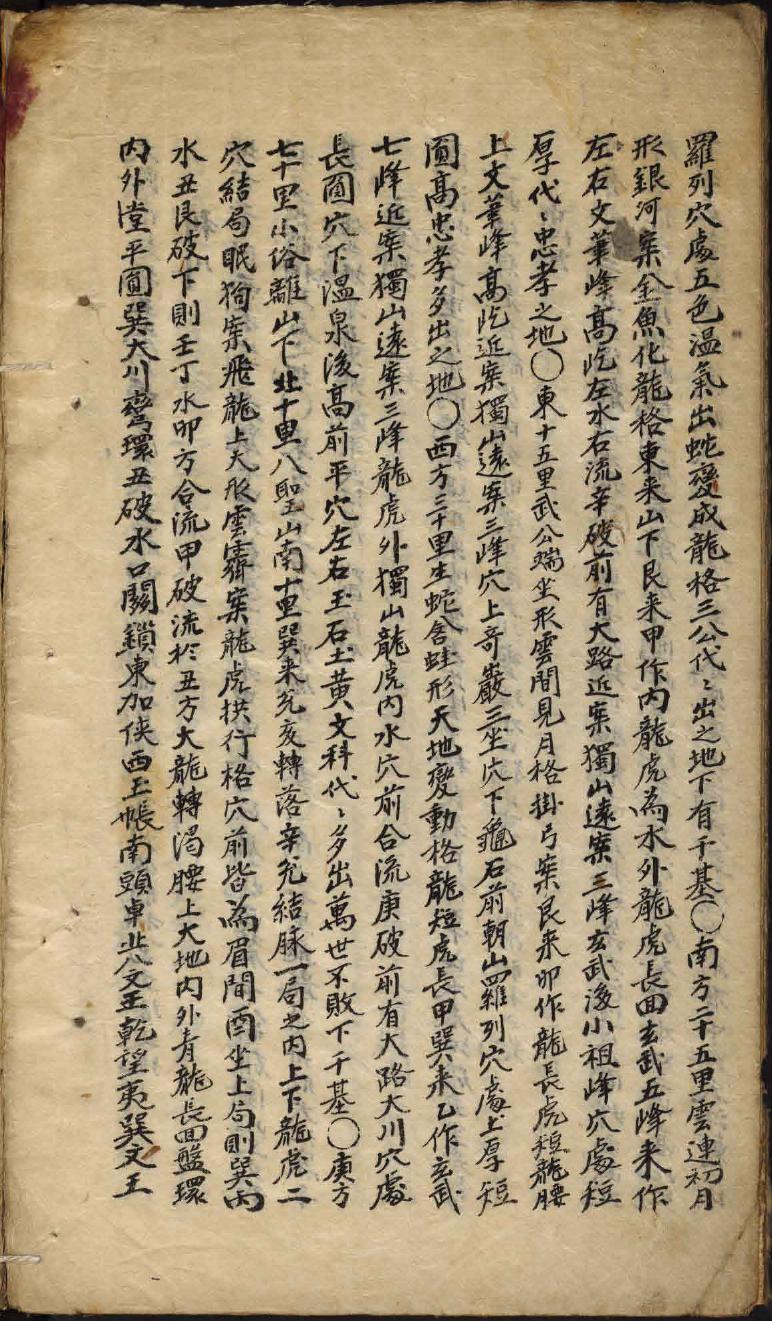 羅列穴處五色温氣出蛇變成龍格三公代〻出之地下有千基○南方二十五里雲連初月
形銀河案金魚化龍格東来山下艮来甲作内龍虎為水外龍虎長回玄武五峰来作
左右文筆峰高屹左水右流辛破前有大路近案獨山遠案三峰玄武後小祖峰穴處短
厚代〻忠孝之地○東十五里武公端坐形雲間見月格掛弓案艮来卯作龍長虎短龍腰
上文筆峰高屹近案獨山遠案三峰穴上奇巖三坐穴下龜石前朝山羅列穴處上厚短
圓高忠孝多出之地○西方三十里生蛇含蛙形天地變動格龍短虎長甲巽来乙作玄武
七峰近案獨山遠案三峰龍虎外獨山龍虎内水穴前合流庚破前有大路大川穴處
長圓穴下温泉後高前平穴左右玉石土黄文科代〻多出萬世不敗下千基○庚方
七十里小俗離山下北十里八聖山南十里巽来兌亥轉落辛兌結脉一局之内上下龍虎二
穴結局眠狗案飛龍上天形雲霽案龍虎拱行格穴前皆為眉間酉坐上局則巽丙
水丑艮破下則壬丁水卯方合流甲破流於丑方大龍轉渴腰上大地内外青龍長回盤環
内外堂平圓巽大川彎環丑破水口關鎖東加俠西玉帳南頭卓北八文玉乾望夷巽文王